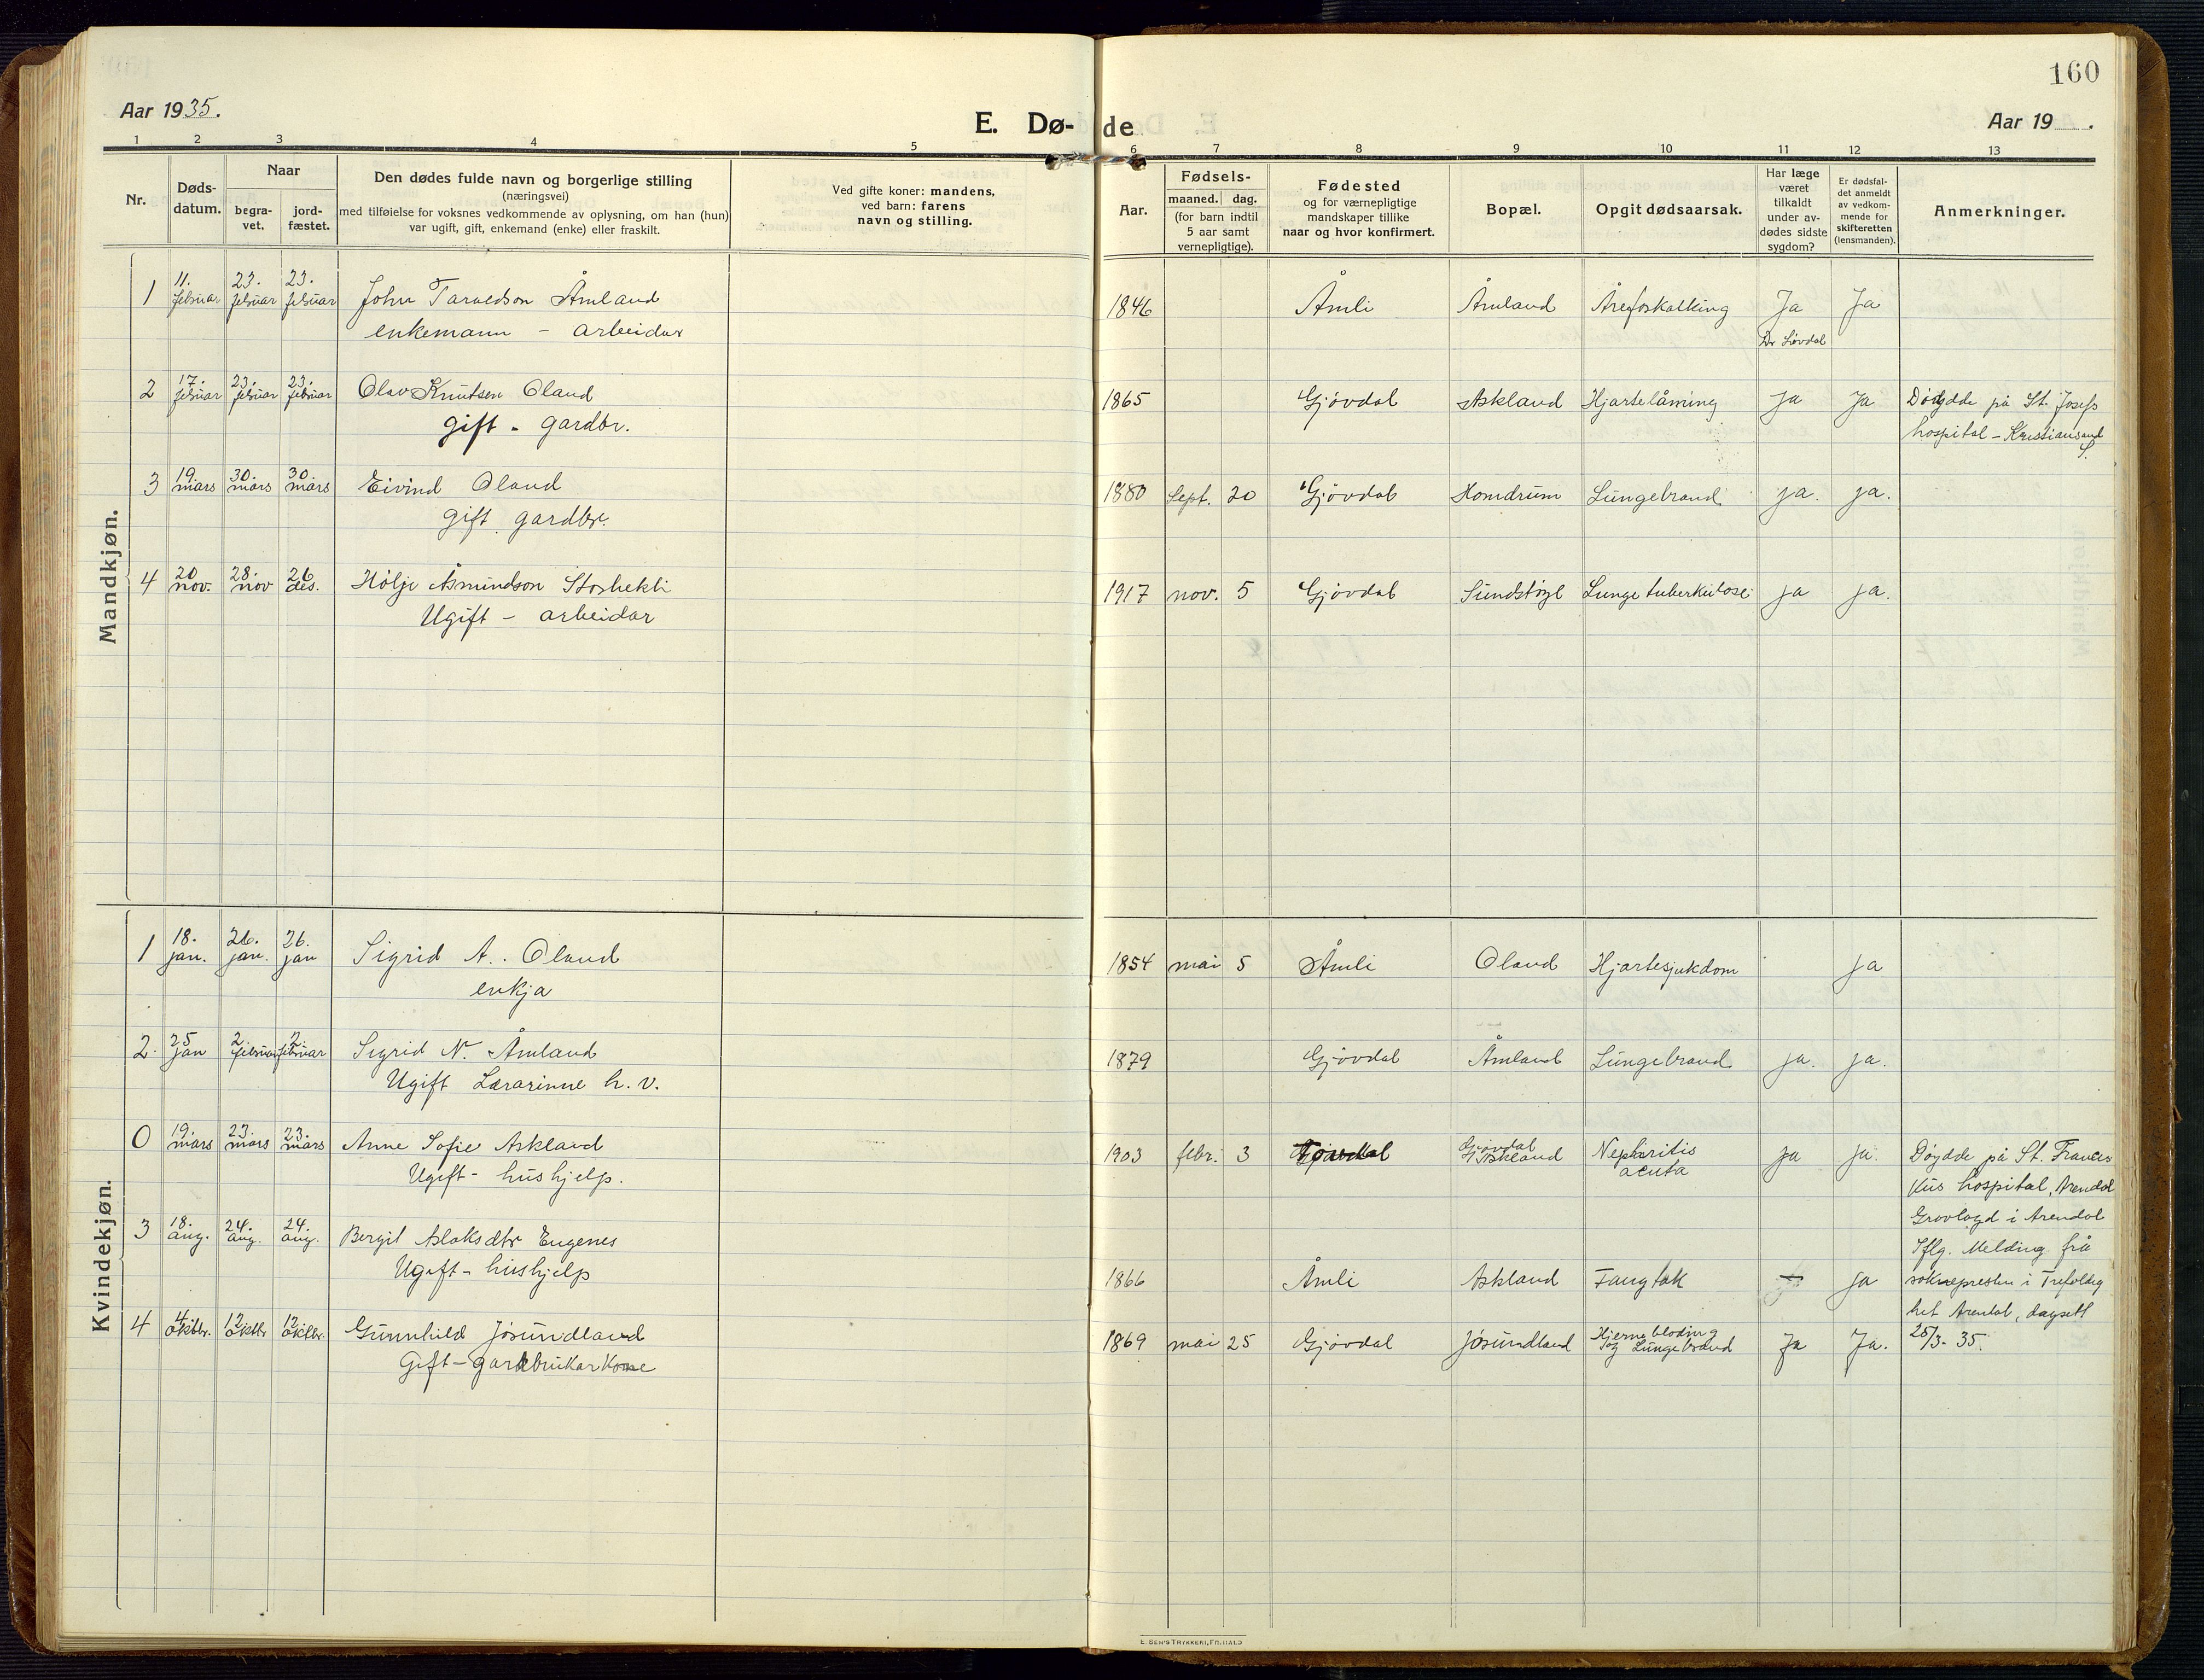 160
Aar 1935.
E. Dø- de
Aar 19 .
1 2 3 4 5 6 7 8 9 10 11 12 13
Nr.
Døds-
datum.
Naar
begra-
vet.
jord-
fæstet.
Den dødes fulde navn og borgerlige stilling
(næringsvei)
med tilføielse for voksnes vedkommende av oplysning, om han (hun)
var ugift, gift, enkemand (enke) eller fraskilt.
Ved gifte koner: mandens,
ved barn: farens
navn og stilling.
Aar.
Fødsels-
maaned. dag.
(for barn indtil
5 aar samt
vernepligtige).
Fødested
og for værnepligtige
mandskaper tillike
naar og hvor konfirmert.
Bopæl.
Opgit dødsaarsak.
Har læge
været
tilkaldt
under av-
dødes sidste
sygdom?
Er dødsfal-
det anmeldt
av vedkom-
mende for
skifteretten
(lensmanden).
Anmerkninger.
Mandkjøn.
1 11. februar 23. februar 23. februar John Tarvedson Åmland 1846 Åmli Åmland Åreforkalking Ja Ja
enkemann - arbeidar Dr Løvdal
2 17. februar 23. februar 23. februar Olav Knutsen Oland 1865 Gjövdal Askland Hjartelåming Ja Ja Döydde på St. Josefs
gift - gardbr. hospital - Kristiansand
S.
3 19. mars 30. mars 30. mars Eivind Oland 1880 Sept. 20 Gjövdal Homdrum Lungebrand ja. ja.
gift gardbr.
4 20 nov. 28. nov 26 des. Hölje Åsmundson Storhekli 1917 nov. 5 Gjövdal Sundstöyl Lunge tuberkulose ja ja.
Ugift - arbeidar
Kvindekjøn.
1 18. jan. 26. jan. 26. jan Sigrid A. Oland 1854 mai 5 Åmli Oland Hjartesjukdom ja
enkja
2. 25 jan 2. februar 2. februar Sigrid N. Åmland 1879 Gjövdal Åmland Lungebrand ja. ja.
Ugift Lærarinne h. v.
0 19. mars 23. mars 23. mars Anne Sofie Askland 1903 febr. 3 Gjövdal Askland Nephritis acuta ja ja. Döydde på St. Francis
Ugift - hushjelp. kus hospital, Arendal
Gravlagd i Arendal
3 18. aug. 24. aug. 24. aug. Bergit Aslaksdtr Eugenes Iflg. Melding frå
Ugift - hushjelp 1866 Åmli Askland Fangtak ja soknepresten i Trefoldig
het Arendal, dagsett
4 4. oktbr. 12. oktbr 12. oktbr. Gunnhild Jösundland 1869 mai 25 Gjövdal Jösundland Hjernebløding og Lungebrand Ja Ja. 25/3- 35.
Gift - gardbrukarkone
E. SEM'S TRYKKERI, FR.HALD